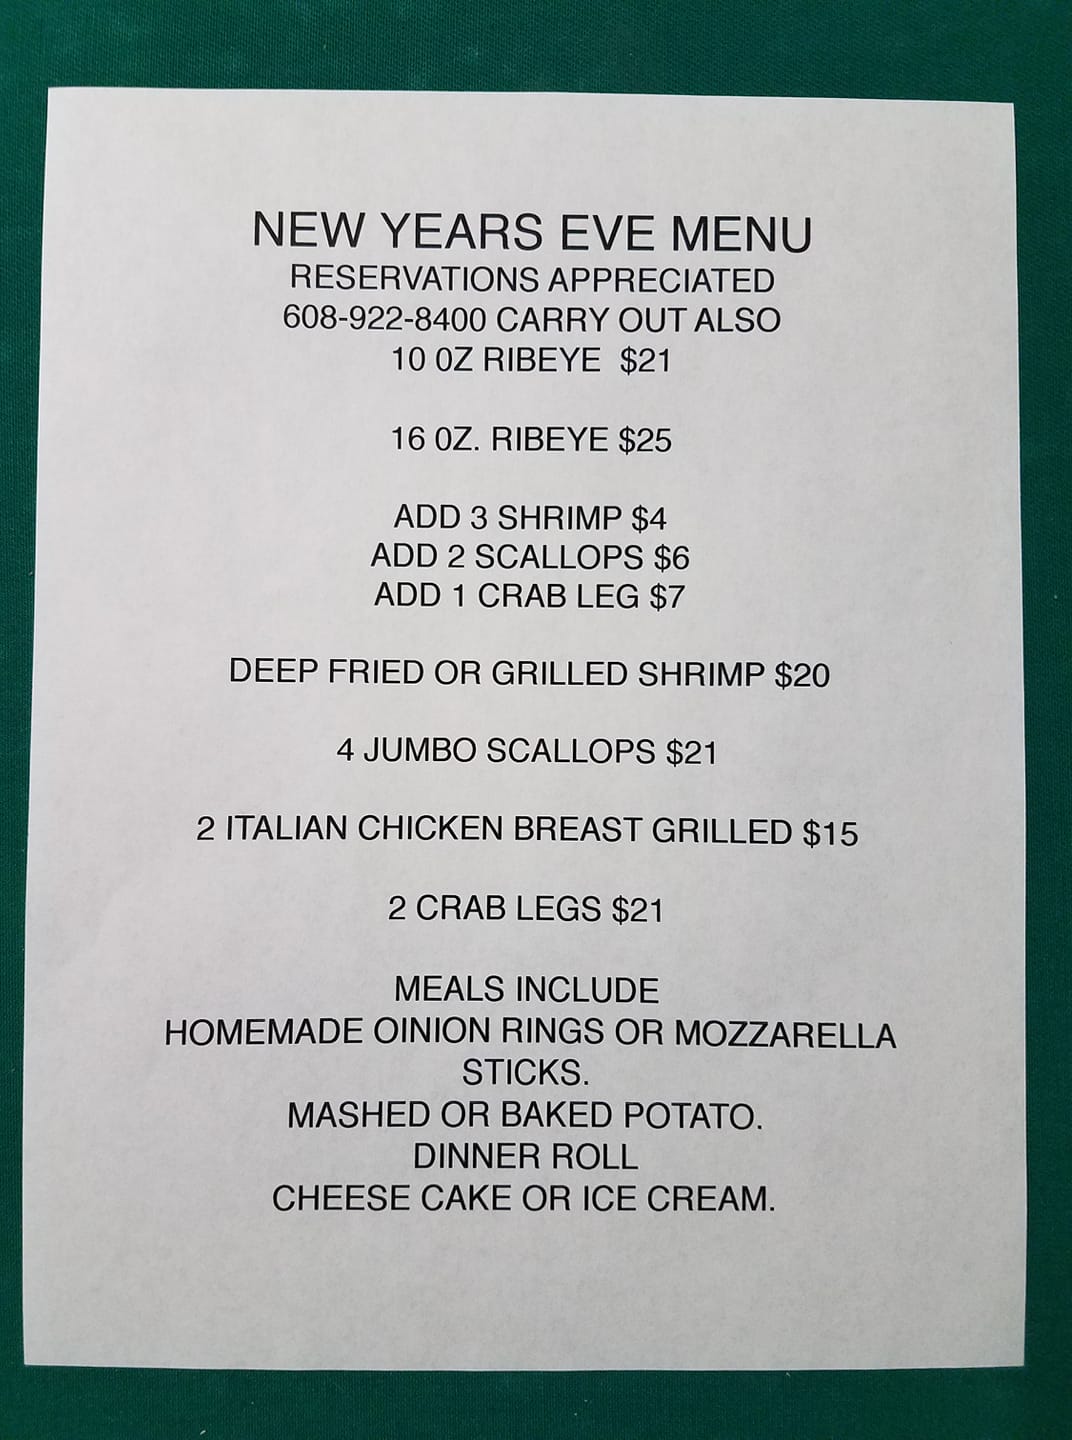 NEW YEARS EVE MENU
RESERVATIONS APPRECIATED
608-922-8400 CARRY OUT ALSO
10 0Z RIBEYE  $21
16 0Z. RIBEYE $25
ADD 3 SHRIMP $4
ADD 2 SCALLOPS $6
ADD 1 CRAB LEG $7
DEEP FRIED OR GRILLED SHRIMP $20
4 JUMBO SCALLOPS $21
2 ITALIAN CHICKEN BREAST GRILLED $15
2 CRAB LEGS $21
MEALS INCLUDE
HOMEMADE OINION RINGS OR MOZZARELLA
STICKS.
MASHED OR BAKED POTATO.
DINNER ROLL
CHEESE CAKE OR ICE CREAM.